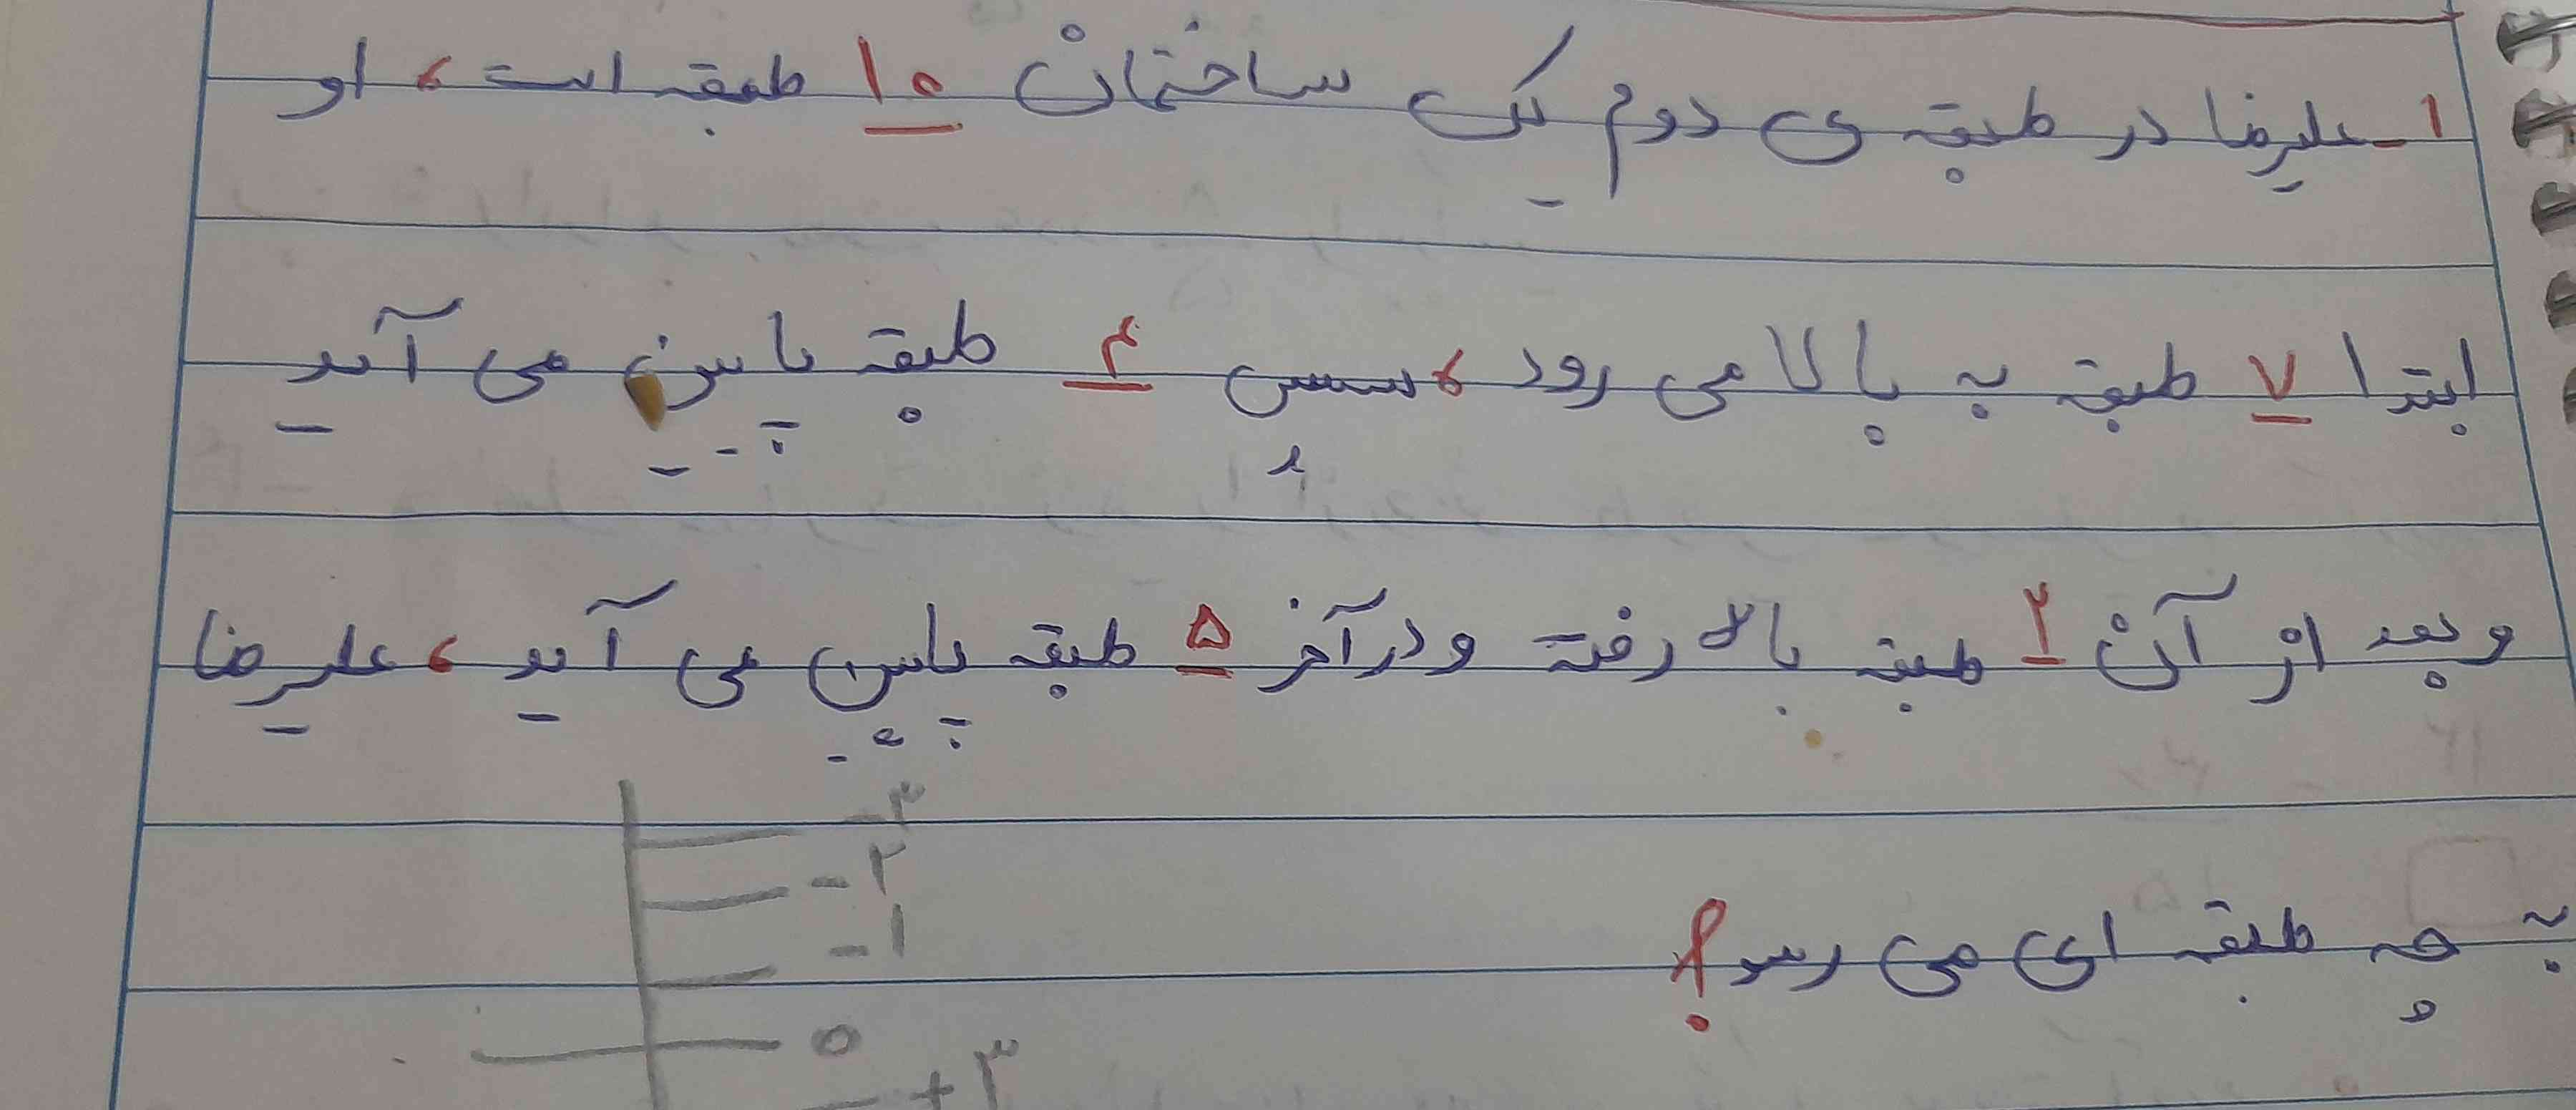 ۱- علیرضا در طبقه ی دوم یک ساختمان ۱۰ طبقه است، او
ابتدا ۷ طبقه به بالا می رود، سپس ۴ طبقه پایین می آید
و بعد از آن ۲ طبقه بالا رفته و در آخر ۵ طبقه پایین می آید، علیرضا
به چه طبقه ای می رسد؟
-۳
-۲
-۱
۰
+۳